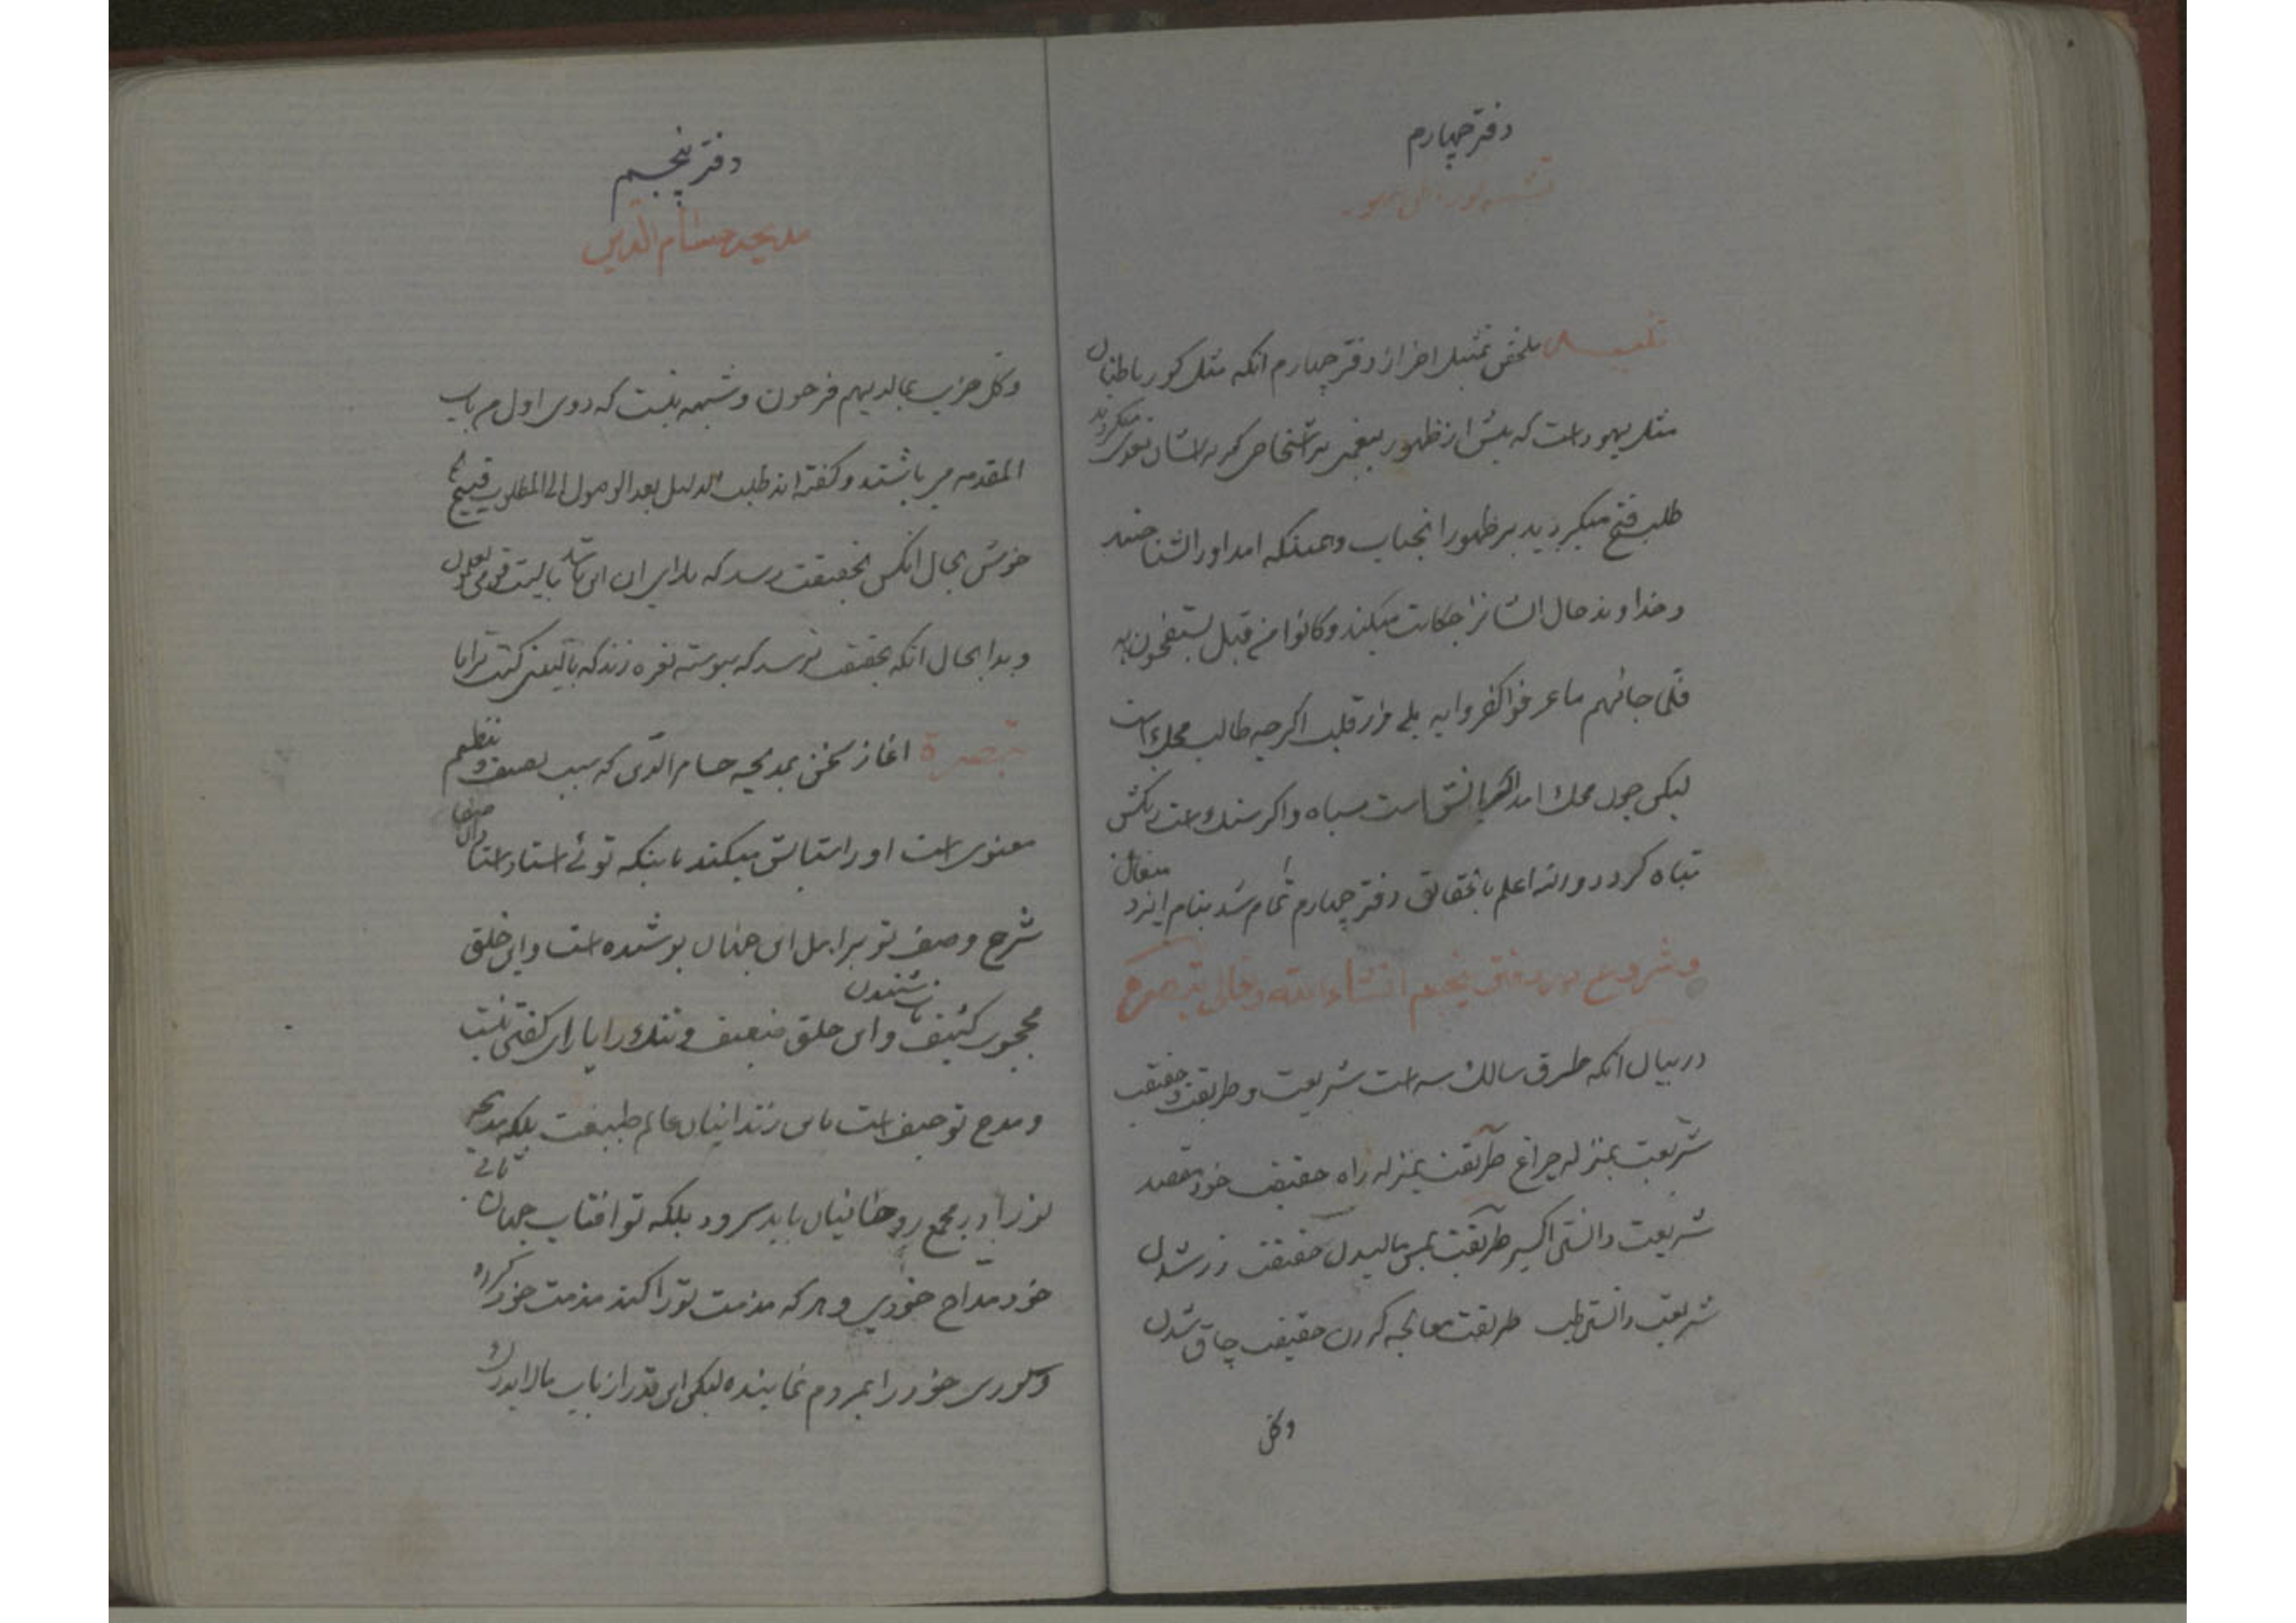 دفتر چهارم
تلخیص ملخص تمثیل اخر از دفتر چهارم انکه مثل کور باطنان
مثل یهود است که پیش از ظهور پیغمبر بر اشخاص که بر ایشان تعدی میکردند
طلب فتح میکردند بر ظهور انجناب و همینکه امد او را نشناختند
و خداوند حال ایشانرا حکایت میکند و کانوا من قبل یستفتحون به
فلما جائهم ما عرفوا کفروا به بلی زر قلب اکرچه طالب محک است
لیکن چون محک امد است سیاه و اکر سنک است رنکش
تباه کردد والله اعلم بالحقایق دفتر چهارم تمام شد بنام ایزد متعال
و شروع در دفتر پنجم انشاء الله تعالی تبصره
در بیان انکه طرق سالک سه است شریعت و طریقت و حقیقت
شریعت بمنزله چراغ طریقت بمنزله راه حقیقت خود مقصد
شریعت دانستن اکسیر طریقت بمس مالیدن حقیقت زر شدن
شریعت دانستن طب طریقت معالجه کردن حقیقت چاق شدن
وکل
دفتر پنجم
مدیحه حسام الدین
وکل حزب بما لدیهم فرحون و شبهه نیست که دوی اول من باب
المقدمه می باشند و کفته اند طلب الدلیل بعد الوصول الی المطلوب قبیح
خوش بحال انکس بحقیقت رسد که یا لیت قومی یعلمون
و بدا بحال انکه بحقیقت نرسد که پیوسته نعره زند که یا لیتنی کنت ترابا
تبصرة اغاز سخن بمدیحه حسام الدین که سبب تصنیف و تنظیم
معنوی است او را ستایش میکند باینکه توئی استاد استادان صفا
شرح وصف تو بر اهل این جهان پوشیده است و این خلق
محجوب کثیف و این حلق ضعیف و تنک را یارای کفتن نیست
و مدح تو حیف است باین زندانیان عالم طبیعت بلکه مدیحه
تو را در مجمع روحانیان باید سرود بلکه تو افتاب جهان
خود مداح خودی و هر که مذمت تو را کند مذمت خود کرده
و کوری خود را بمردم نماینده لیکن این قدر از باب ما لا یدرک